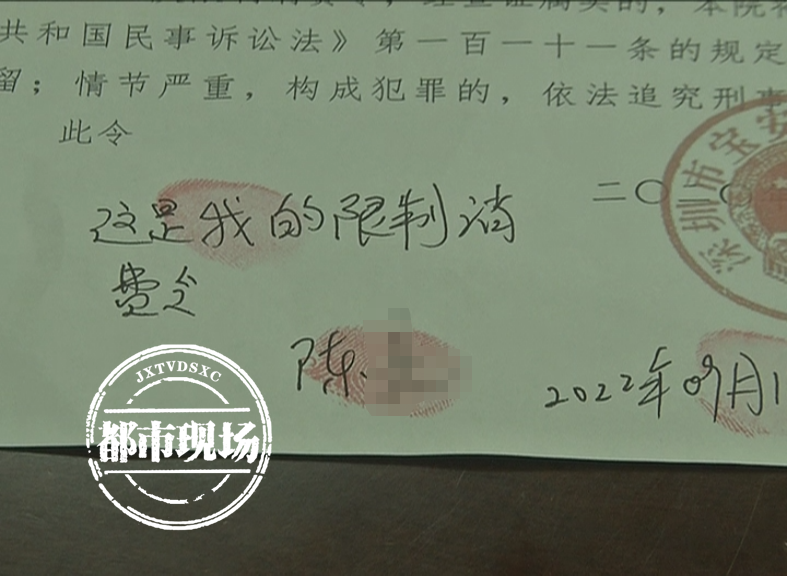 共和国民事诉讼法》第一百一十一条的规定
留；情节严重，构成犯罪的，依法追究刑事
此令
二〇
深圳市宝安
这是我的限制消
费令
陈
2022年09月1
JXTVDSXC
都市现场